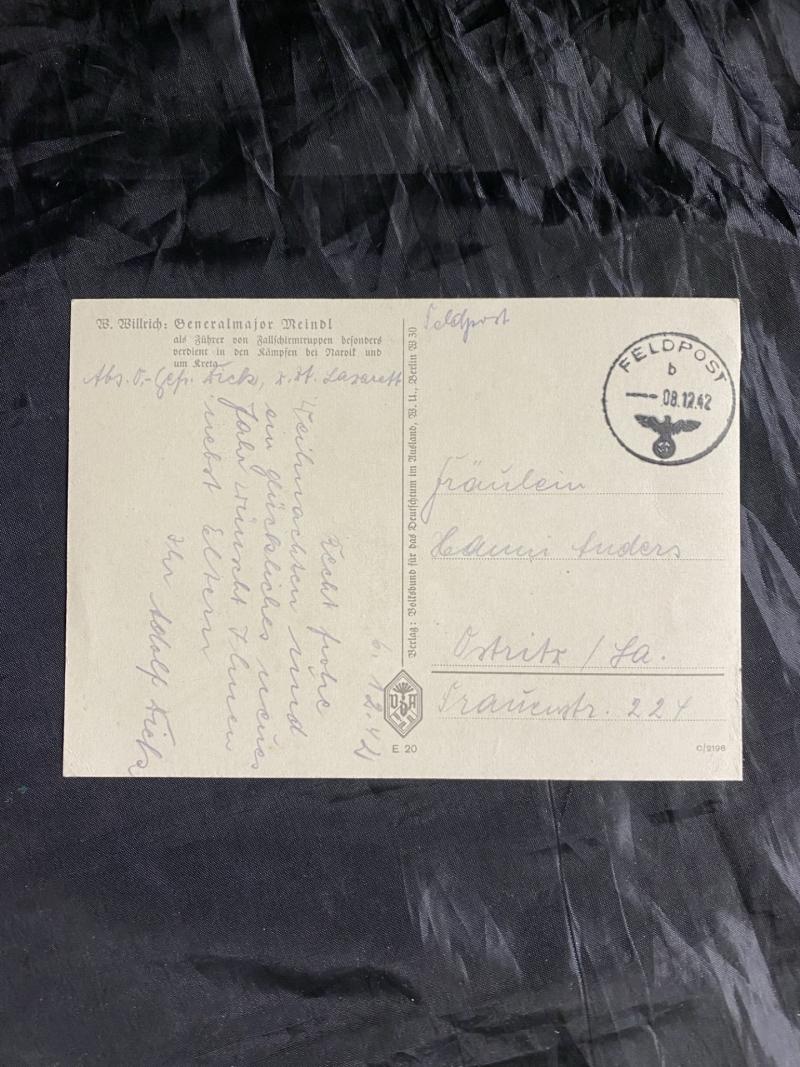 W. Willrich: Generalmajor Meindl
als Führer von Fallschirmtruppen besonders
verdient in den Kämpfen bei Narvik und
um Kreta
Abs. O.-Gef. z. Zt. Lazarett
6.12.42
Recht frohe
Weihnachten und
ein glückliches neues
Jahr wünscht Ihnen
nebst Eltern
Ihr Adolf
Verlag: Volksbund für das Deutschtum im Ausland, W. U., Berlin W 30
VDA
E 20
Feldpost
FELDPOST
b
08.12.42
Fräulein
Hanni Anders
Ostritz / Sa.
Frauenstr. 224
C/2196